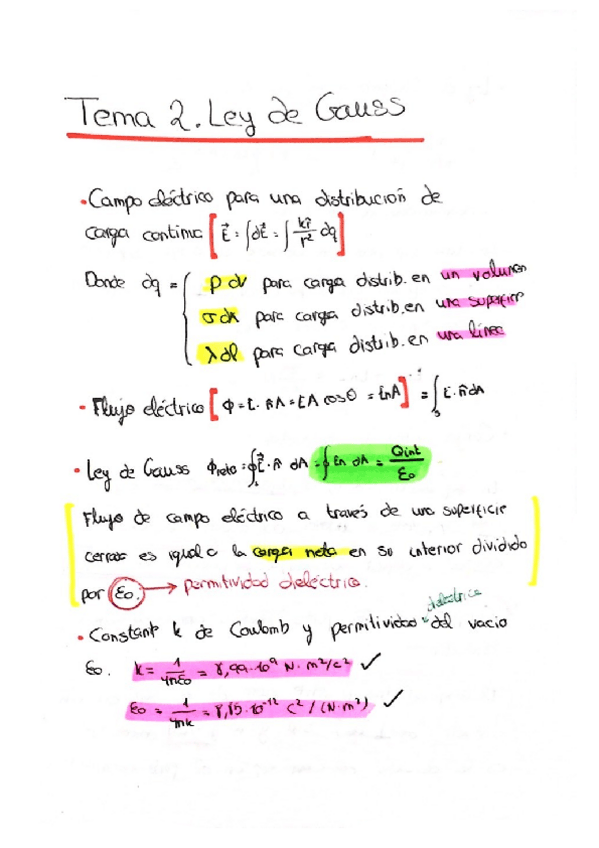 Tema 2. Ley de Gauss
• Campo eléctrico para una distribución de
carga continua [E⃗ = ∫dE⃗ = ∫ kr̂/r² dq]
Donde dq = { ρ dv para carga distrib. en un volumen
σ dA para carga distrib. en una superficie
λ dl para carga distrib. en una línea
- Flujo eléctrico [Φ = E⃗ · n̂A = EA cosθ = EnA] = ∫s E⃗ · n̂ dA
• Ley de Gauss Φneto = ∮s E⃗ · n̂ dA = ∮ En dA = Qint/ε₀
[Flujo de campo eléctrico a través de una superficie
cerrada es igual a la carga neta en su interior dividido
por ε₀.] → permitividad dieléctrica.
dieléctrica
• Constante k de Coulomb y permitividad del vacio
ε₀. k = 1/4πε₀ = 8,99·10⁹ N·m²/C² ✓
ε₀ = 1/4πk = 8,85·10⁻¹² C²/(N·m²) ✓